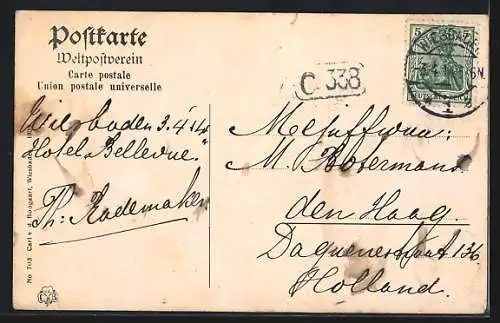 Postkarte
Weltpostverein
Carte postale
Union postale universelle
5
WIESBADEN
1
C 338
Wiesbaden 3.4.14
Hotel Bellevue."
Th: Rademaker
M. Botermans
den Haag.
136
Holland.
No 703 Carl v. d. Boogaart, Wiesbaden